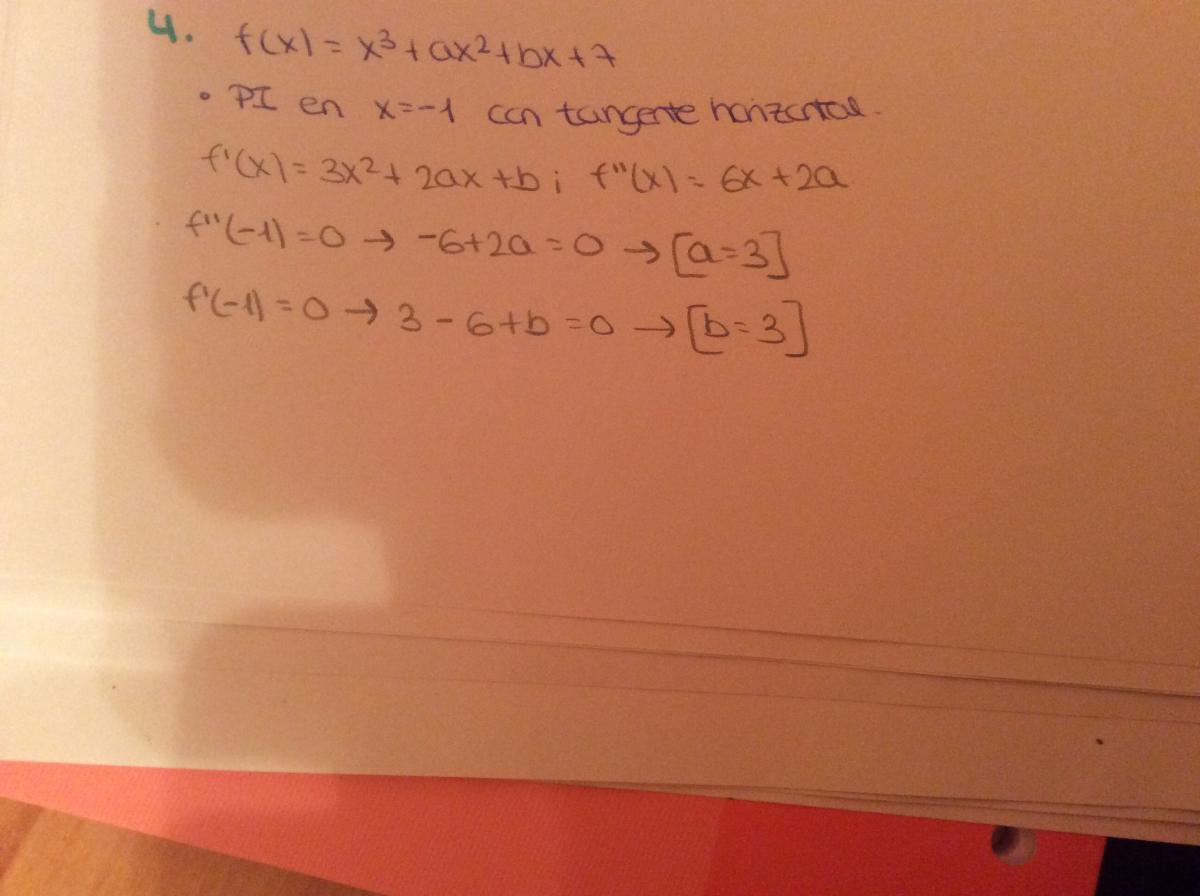 4. f(x) = x³ + ax² + bx + 7
• PI en x=-1 con tangente horizontal.
f'(x) = 3x² + 2ax + b ; f''(x) = 6x + 2a
f''(-1) = 0 → -6 + 2a = 0 → [a=3]
f'(-1) = 0 → 3 - 6 + b = 0 → [b=3]